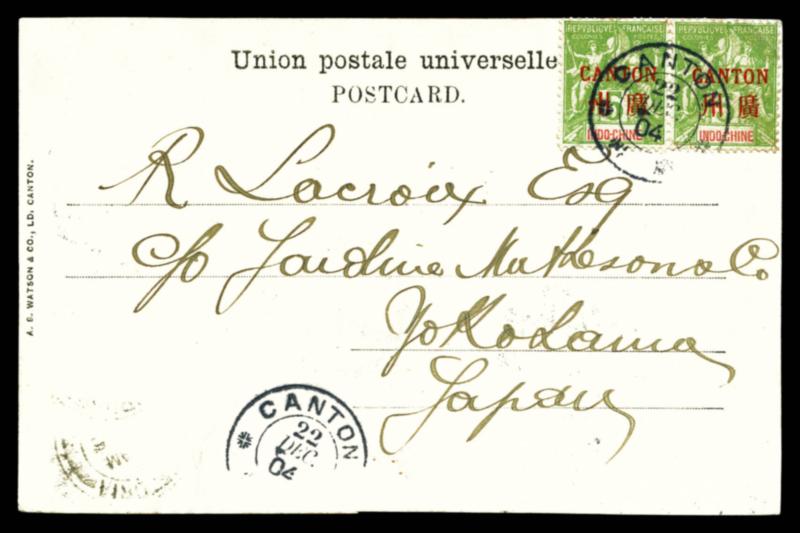 Union postale universelle
POSTCARD.
REPUBLIQUE FRANÇAISE
COLONIES POSTES
CANTON
州廣
INDO-CHINE
REPUBLIQUE FRANÇAISE
COLONIES POSTES
CANTON
州廣
INDO-CHINE
CANTON
22
DEC
04
R Lacroix Esq
c/o Jardine Matheson & Co.
Yokohama
Japan
A. S. WATSON & CO., LD. CANTON.
CANTON
22
DEC.
04
AM